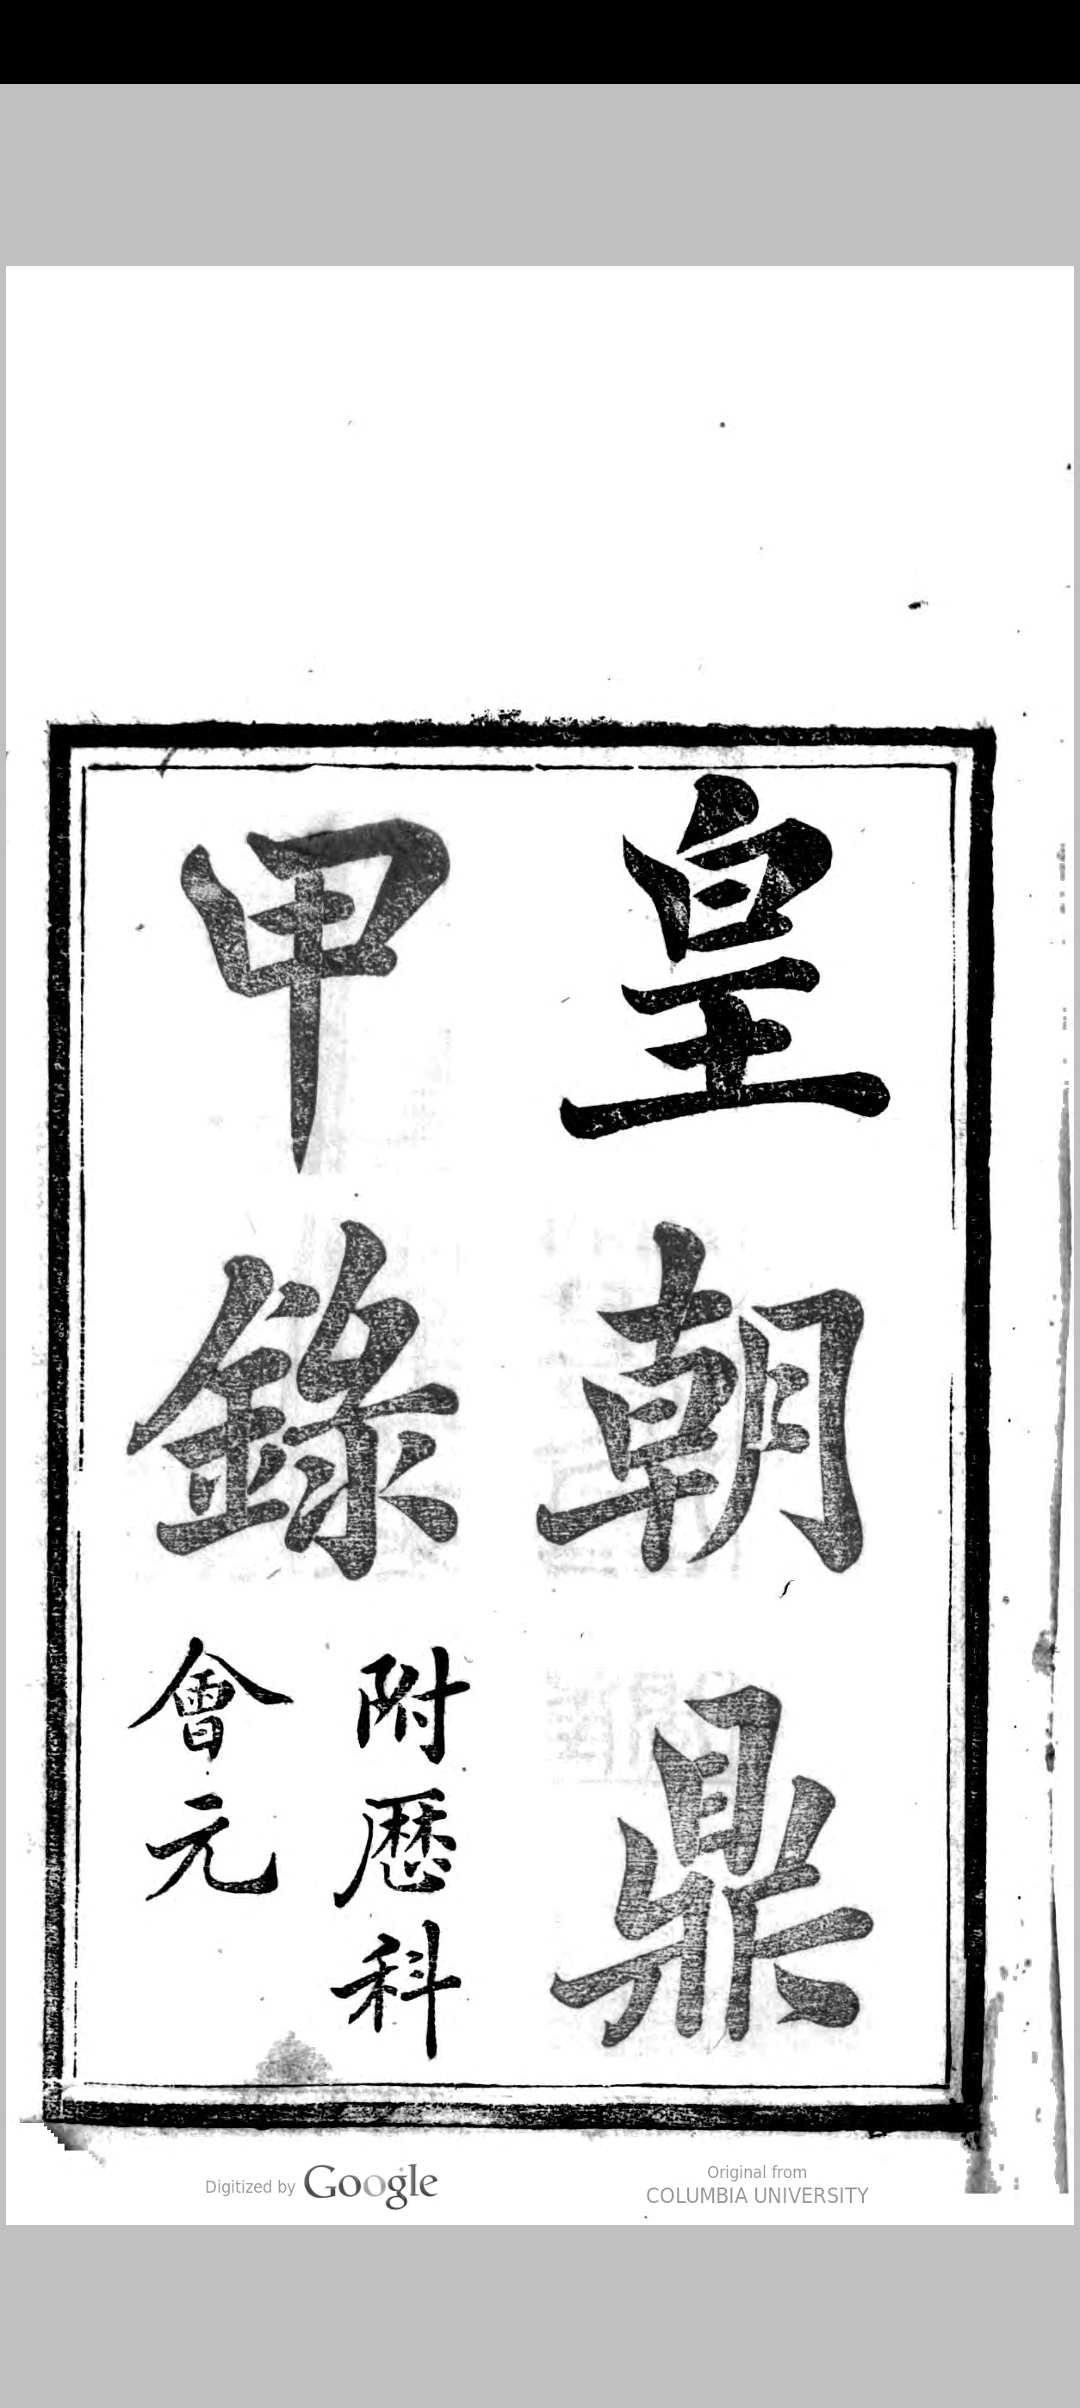 皇朝鼎
甲錄
附歷科
會元
Digitized by Google
Original from
COLUMBIA UNIVERSITY